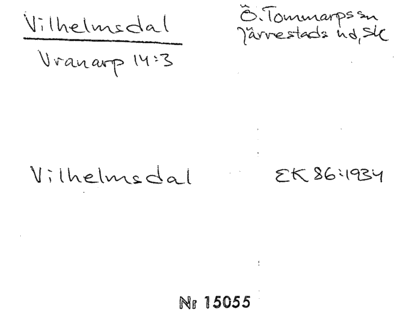 Vilhelmsdal
Ö. Tommarps sn
Järrestads hd, Sk
Vranarp 14:3
Vilhelmsdal
EK 86:1934
Nr 15055